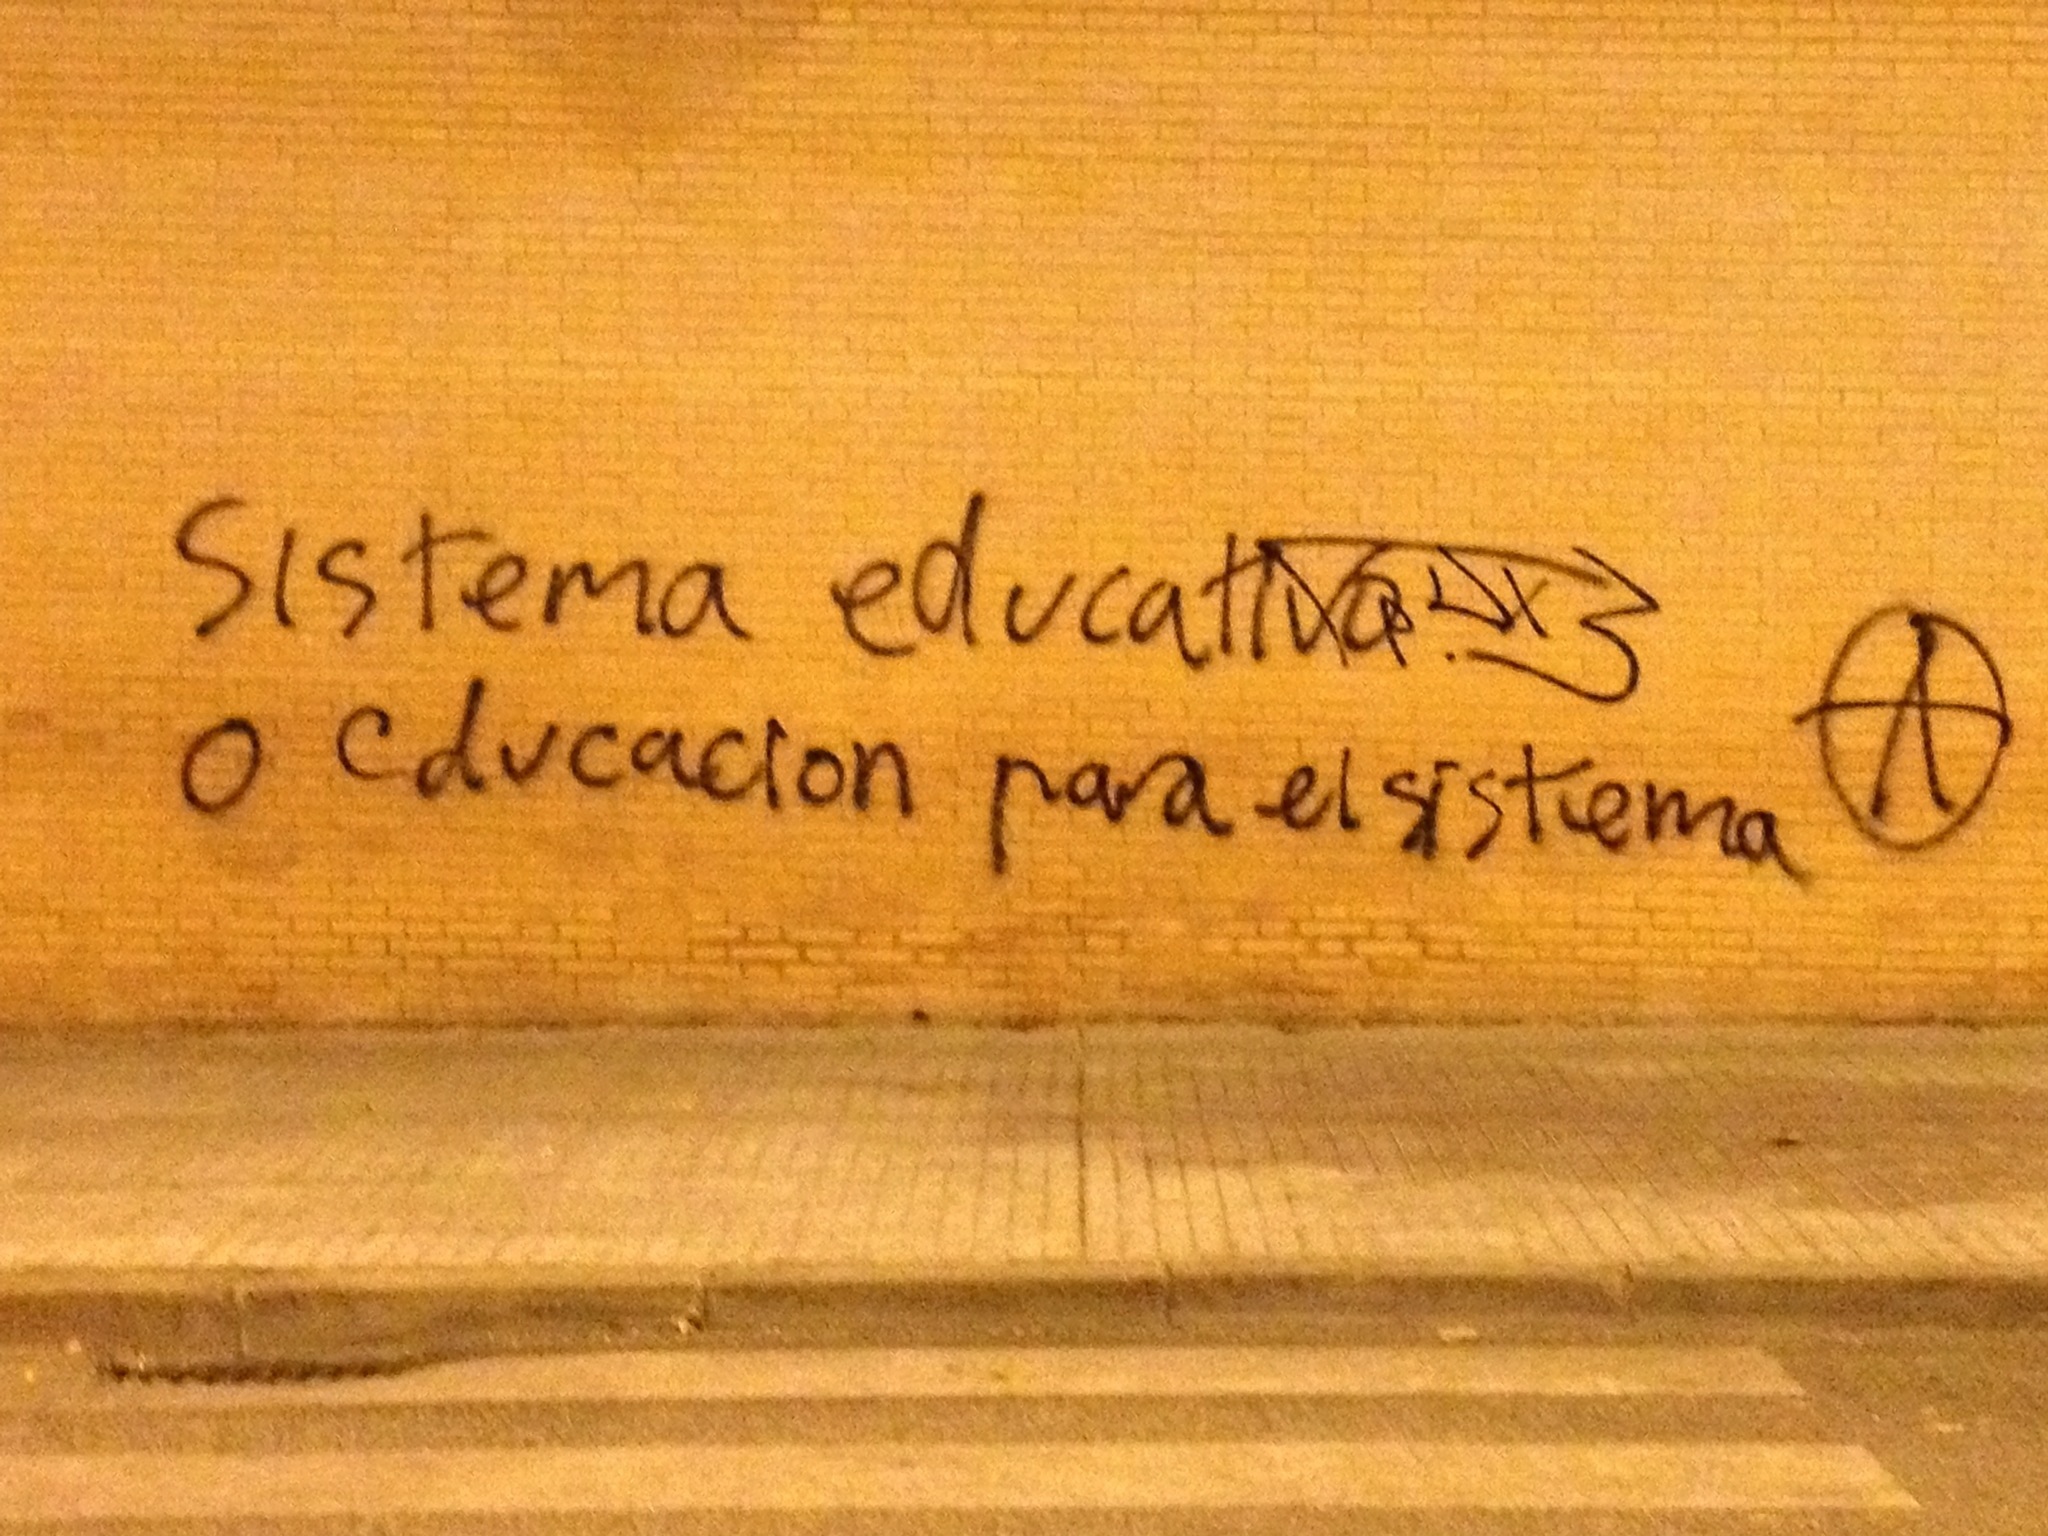 Sistema educativo
o educacion para el sistema